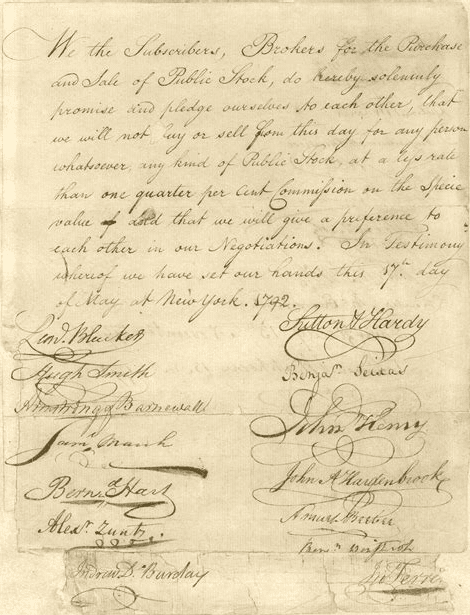 We the Subscribers, Brokers for the Purchase
and Sale of Public Stock, do hereby solemnly
promise and pledge ourselves to each other, that
we will not buy or sell from this day for any person
whatsoever, any kind of Public Stock, at a less rate
than one quarter per Cent Commission on the Specie
value & that we will give a preference to
each other in our Negotiations. In Testimony
whereof we have set our hands this 17th day
of May at New York. 1792.
Leod. Bleecker
Hugh Smith
Armstrong & Barnewall
Saml. March
Bernd. Hart
Alexr. Zuntz
Andrew D. Barclay
Sutton & Hardy
Benjan. Seixas
John Henry
John A Hardenbrook
Amurt Beebee